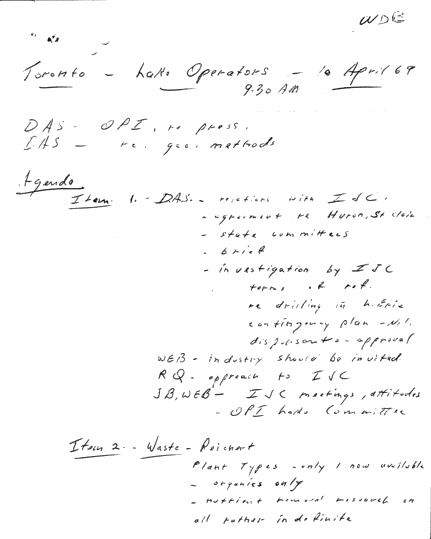 WDE
Toronto - Lake Operators - 10 April 69
9.30 AM
DAS - OPI, re press.
IAS - re. geo. methods
Agenda
Item 1. - DAS. - relations with IJC.
- agreement re Huron, St Clair
- state committees
- brief
- investigation by IJC
terms of ref.
re drilling in L. Erie
contingency plan - Nil.
dispersants - approval
WEB - industry should be invited
RQ - approach to IJC
JB, WEB - IJC meetings, attitudes
- OPI Lake Committee
Item 2. - Waste - Reichert
Plant Types - only 1 now available
- organics only
- nutrient removal research on
all rather indefinite